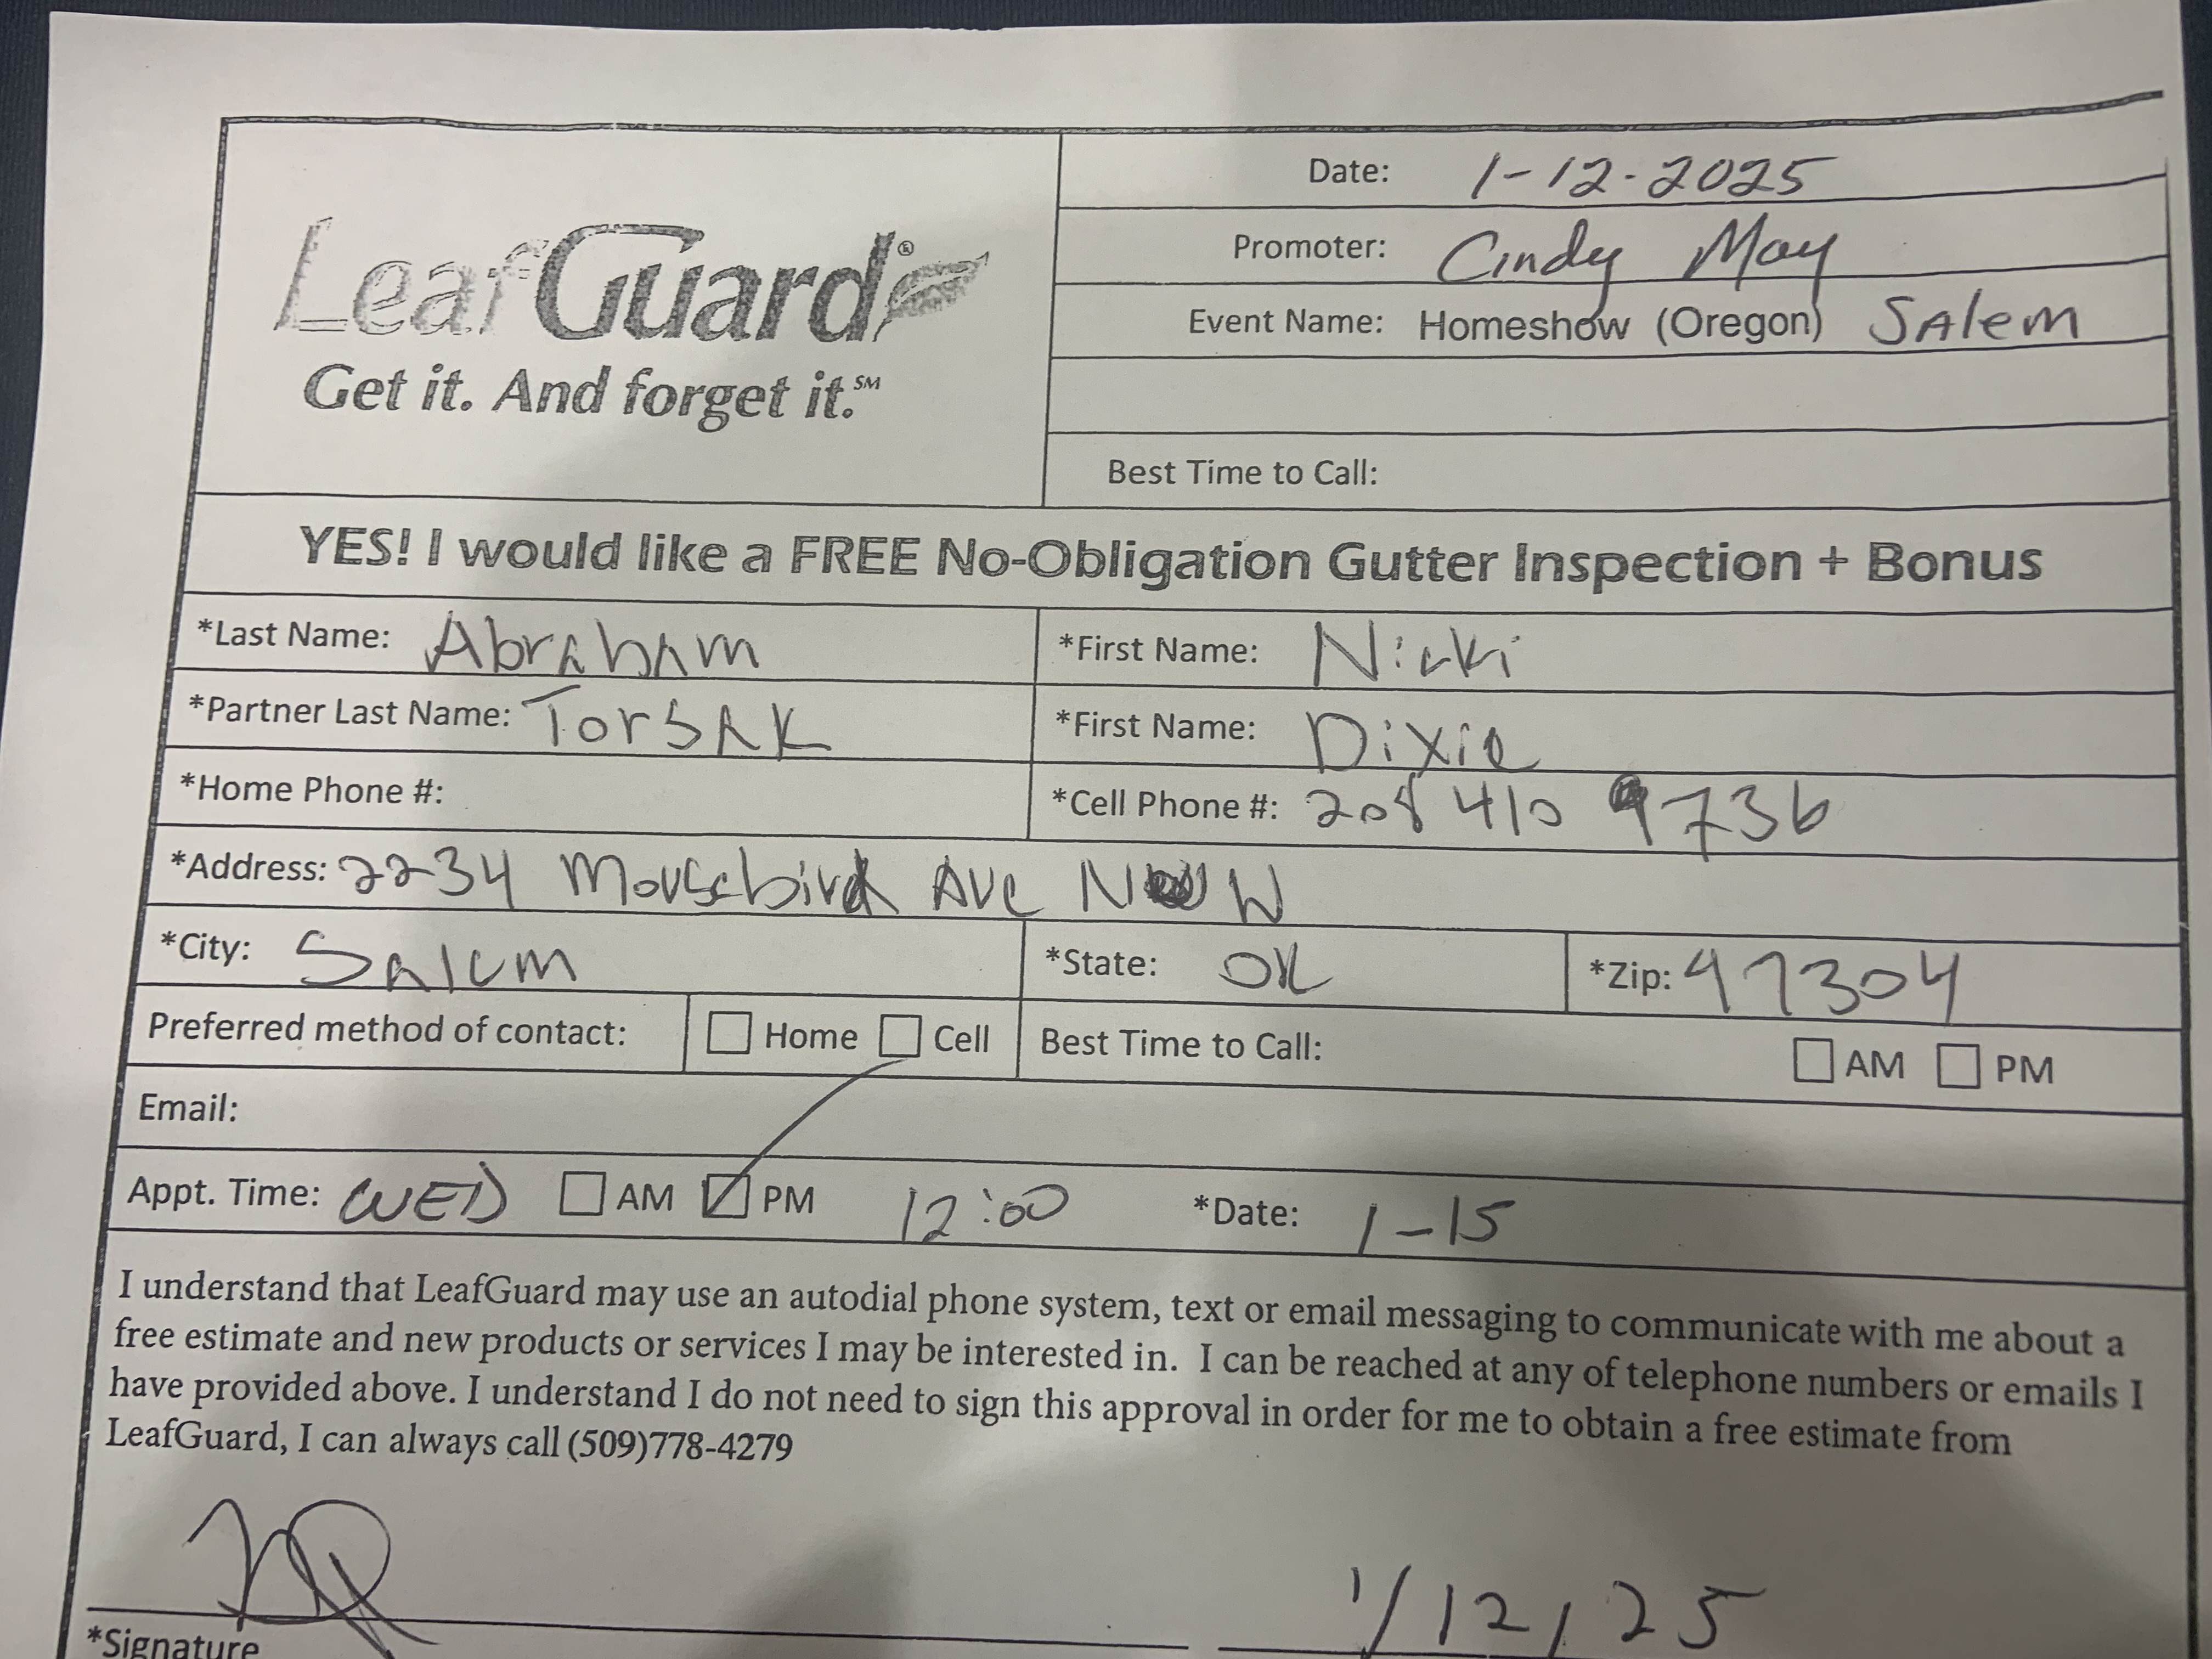 LeafGuard®
Get it. And forget it.℠
Date: 1-12-2025
Promoter: Cindy May
Event Name: Homeshow (Oregon) SAlem
Best Time to Call:
YES! I would like a FREE No-Obligation Gutter Inspection + Bonus
*Last Name: AbrAhAm *First Name: Nicki
*Partner Last Name: TorSAK *First Name: Dixie
*Home Phone #: *Cell Phone #: 208 410 9736
*Address: 2234 Mousebird Ave NW
*City: SAlem *State: OR *Zip: 97304
Preferred method of contact: ☐ Home ☐ Cell Best Time to Call: ☐ AM ☐ PM
Email:
Appt. Time: WED ☐ AM ☑ PM 12:00 *Date: 1-15
I understand that LeafGuard may use an autodial phone system, text or email messaging to communicate with me about a
free estimate and new products or services I may be interested in. I can be reached at any of telephone numbers or emails I
have provided above. I understand I do not need to sign this approval in order for me to obtain a free estimate from
LeafGuard, I can always call (509)778-4279
1/12/25
*Signature